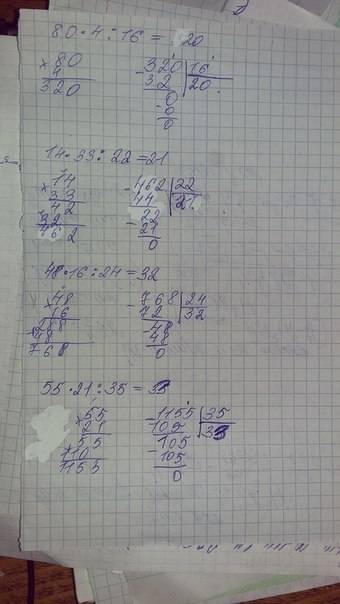 80·4:16 = 20
×80
4
320
-320 | 16
32 | 20
0
-0
0
14·33:22 = 21
×14
33
42
42
462
-462 | 22
44 | 21
22
-21
0
48·16:24 = 32
×48
16
288
+48
768
-768 | 24
72 | 32
-48
48
0
55·21:35 = 33
×55
21
55
110
1155
-1155 | 35
105 | 33
105
-105
0